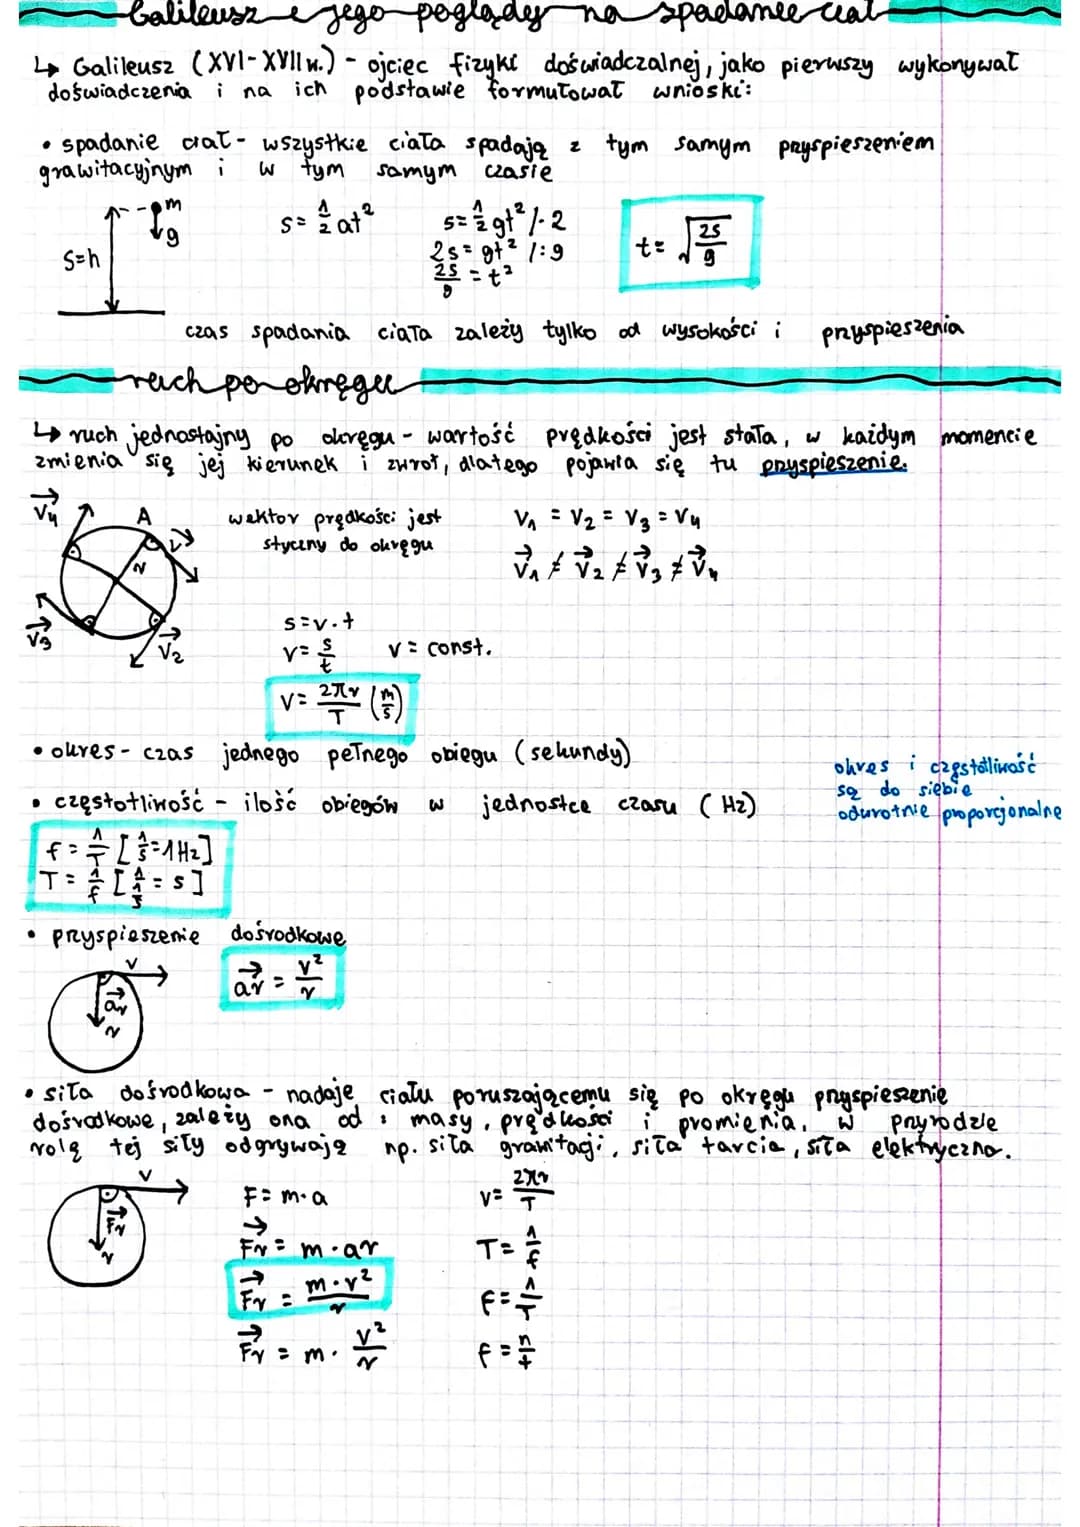 Galileusz i jego poglądy na spadanie ciał
↳ Galileusz (XVI-XVII w.) - ojciec fizyki doświadczalnej, jako pierwszy wykonywał
doświadczenia i na ich podstawie formułował wnioski:
• spadanie ciał - wszystkie ciała spadają z tym samym przyspieszeniem
grawitacyjnym i w tym samym czasie
m
g
s=h
s = 1/2 at²
s = 1/2 gt² /·2
2s = gt² /:g
2s/g = t²
t = √(2s/g)
czas spadania ciała zależy tylko od wysokości i przyspieszenia
ruch po okręgu
↳ ruch jednostajny po okręgu - wartość prędkości jest stała, w każdym momencie
zmienia się jej kierunek i zwrot, dlatego pojawia się tu przyspieszenie.
V₄ A r V₃ V₂
wektor prędkości jest
styczny do okręgu
V₁ = V₂ = V₃ = V₄
V₁ ≠ V₂ ≠ V₃ ≠ V₄
s = v·t
v = s/t v = const.
V = 2πr/T (m/s)
• okres - czas jednego pełnego obiegu (sekundy)
• częstotliwość - ilość obiegów w jednostce czasu (Hz)
okres i częstotliwość
są do siebie
odwrotnie proporcjonalne
f = 1/T [1/s = 1Hz]
T = 1/f [1/(1/s) = s]
• przyspieszenie dośrodkowe
v
ar
r
ar = v²/r
• siła dośrodkowa - nadaje ciału poruszającemu się po okręgu przyspieszenie
dośrodkowe, zależy ona od: masy, prędkości i promienia. w przyrodzie
rolę tej siły odgrywają np. siła grawitacji, siła tarcia, siła elektryczna.
v
Fr
r
F = m·a
Fr = m·ar
Fr = m·v²/r
Fr = m · v²/r
v = 2πr/T
T = 1/f
f = 1/T
f = n/t